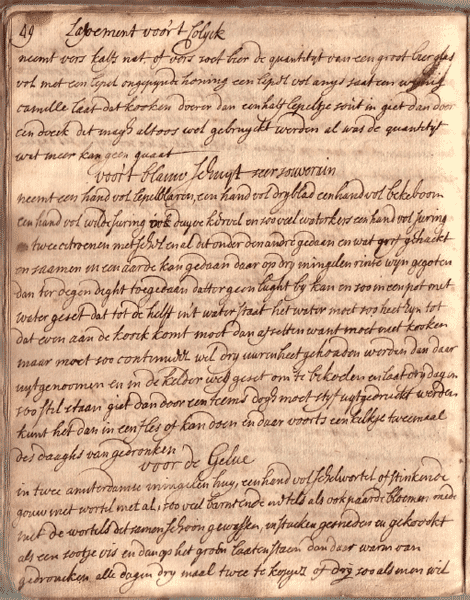 49 Lavement voor't Colyck
neemt vers kalfs nat, of vers soet bier de quantityt van een groot bier glas
vol met een lepel ongepynde honing een lepel vol anys saat een weynig
camille laat dat koocken doerer dan een half lepeltje sout in giet dan door
een doeck dit magh altoos wel gebruyckt werden al was de quantityt
wat meer kan geen quaat
voor't blauw schuyt seer souverain
neemt een hand vol lepelblaren, een hand vol dryblad een hand vol bekeboom
een hand vol wilde suring duyve kervel en soo veel waterkers een hand vol suring
twee citroenen met schel en al dit onder den andre gedaen en wat gehackt
en saamen in een aarde kan gedaen daar op dry mingelen rinse wyn gegoten
dan ter degen dight toegedaan datter geen lught by kan en soo in een pot met
water geset dat tot de helft in't water staat het water moet soo heet zyn tot
dat even aan de koock komt moet dan afsetten want moet niet koocken
maar moet soo continueel wel dry uuren heet gehouden werden dan daar
uytgenoomen en in de kelder wegh geset om te bekoelen en laat dry dagen
soo stil staan giet dan door een teems dogh moet styf uytgedruckt werden
kunt het dan in een fles of kan doen en daar voorts een kelkje tweemaal
des daaghs van gedroncken
voor de Gelue
in twee amsterdamse mingelen huy, een hand vol schelwortel of stinkende
gouw met wortel met al, soo veel barntende nետels als ook paarde bloemen mede
met de wortels dit samen schoon gewassen, en stucken gesneden en gekoockt
als een sootje vis en dan op het groen laaten staen dan daar warm van
gedroncken alle dagen dry maal twee te kopjes of dry soo als men wil